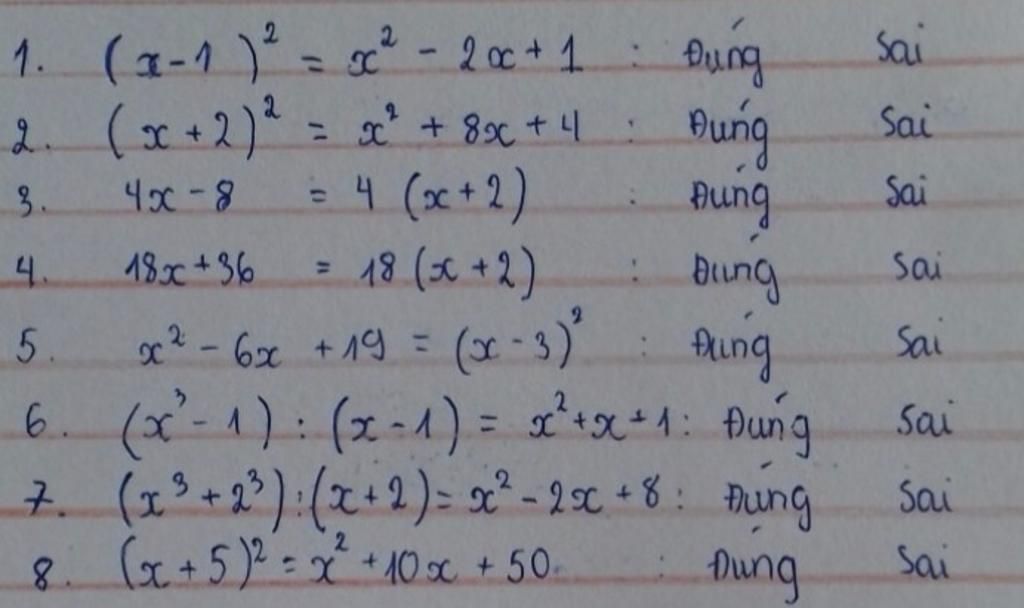 1. (x-1)² = x² - 2x + 1 : Đúng Sai
2. (x + 2)² = x² + 8x + 4 : Đúng Sai
3. 4x - 8 = 4 (x + 2) : Đúng Sai
4. 18x + 36 = 18 (x + 2) : Đúng Sai
5. x² - 6x + 19 = (x - 3)² : Đúng Sai
6. (x³ - 1) : (x - 1) = x² + x + 1 : Đúng Sai
7. (x³ + 2³) : (x + 2) = x² - 2x + 8 : Đúng Sai
8. (x + 5)² = x² + 10x + 50. : Đúng Sai